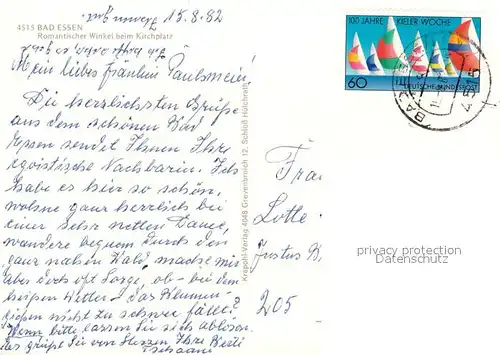 15.8.82
4515 BAD ESSEN
Romantischer Winkel beim Kirchplatz
Mein liebes Fräulein Paulsmein!
Die herzlichsten Grüße
aus dem schönen Bad
Essen sendet Ihnen Ihre
egoistische Nachbarin. Ich
habe es hier so schön,
wohne ganz herrlich bei
einer sehr netten Dame,
wandere bequem durch den
ganz nahen Wald, mache mir
aber doch oft Sorge, ob - bei dem
heißen Wetter - das Blumen-
gießen nicht zu schwer fällt?
Wenn, bitte lassen Sie sich ablösen.
das grüßt Sie von Herzen Ihre
Krapohl-Verlag 4048 Grevenbroich 12, Schloß Hülchrath
100 JAHRE KIELER WOCHE
60 DEUTSCHE BUNDESPOST
BAD ESSEN
4515
Frau
Lotte
Justus
205
privacy protection
Datenschutz